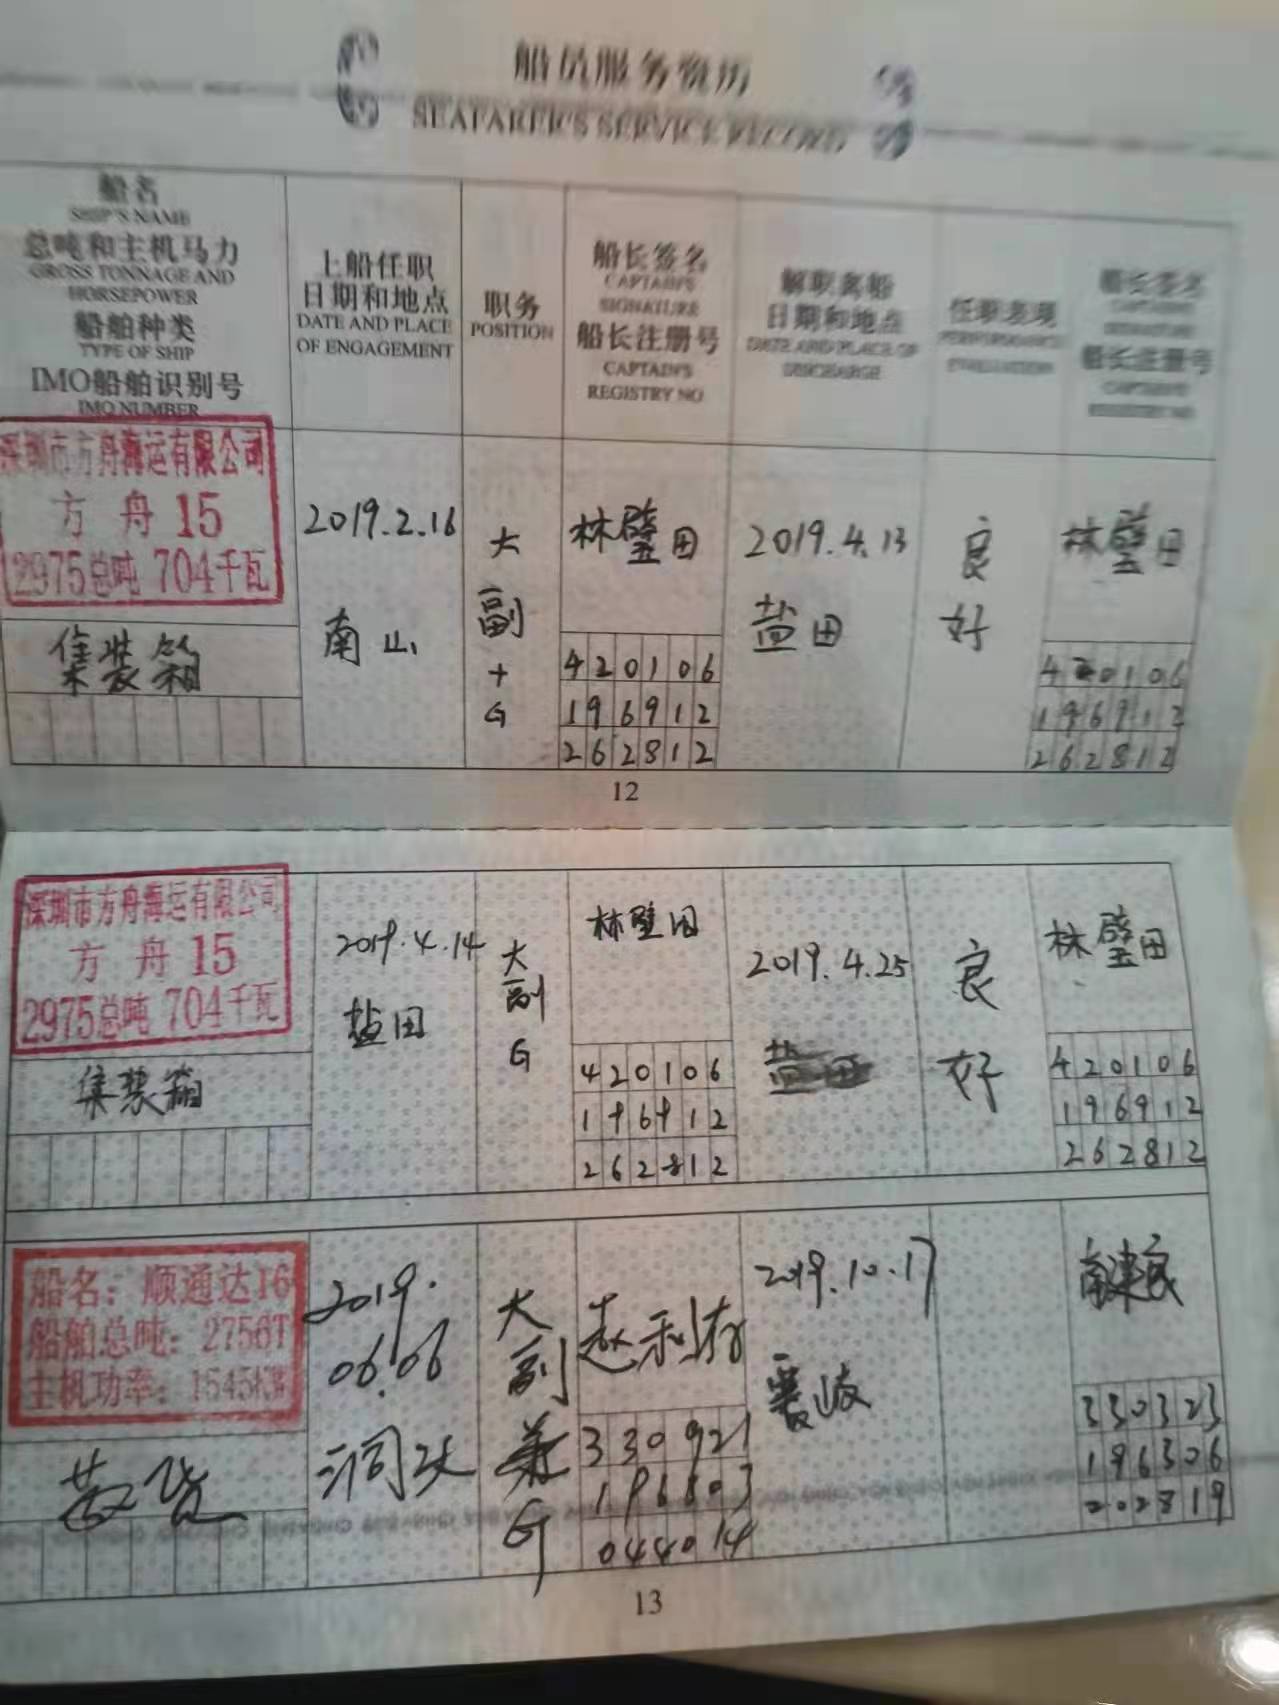 船员服务资历
SEAFARER'S SERVICE RECORD
船名
SHIP'S NAME
总吨和主机马力
GROSS TONNAGE AND
HORSEPOWER
船舶种类
TYPE OF SHIP
IMO船舶识别号
IMO NUMBER
上船任职
日期和地点
DATE AND PLACE
OF ENGAGEMENT
职务
POSITION
船长签名
CAPTAIN'S
SIGNATURE
船长注册号
CAPTAIN'S
REGISTRY NO
解职离船
日期和地点
DATE AND PLACE OF
DISCHARGE
任职表现
PERFORMANCE
EVALUATION
船长签名
CAPTAIN'S
SIGNATURE
船长注册号
CAPTAIN'S
REGISTRY NO
深圳市方舟海运有限公司
方舟15
2975总吨 704千瓦
集装箱
2019.2.16
南山
大
副
+
G
林璧田
420106
196912
262812
2019.4.13
盐田
良
好
林璧田
420106
196912
262812
12
深圳市方舟海运有限公司
方舟15
2975总吨 704千瓦
集装箱
2019.4.14
盐田
大
副
G
林璧田
420106
196912
262812
2019.4.25
盐田
良
好
林璧田
420106
196912
262812
船名：顺通达16
船舶总吨：2756T
主机功率：1545KW
散货
2019.
06.06
洞头
大
副
兼
G
赵利存
330921
196803
044014
2019.10.17
330323
196306
202819
13